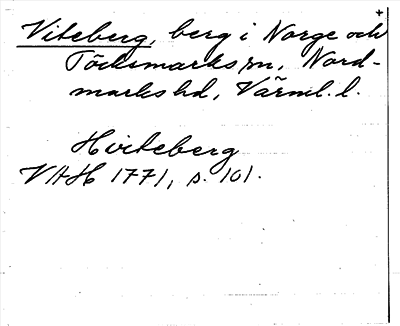 +
Viteberg, berg i Norge och
Töcksmarks sn, Nord-
marks hd, Värml. l.
Hviteberg
VAH 1771, s. 101.